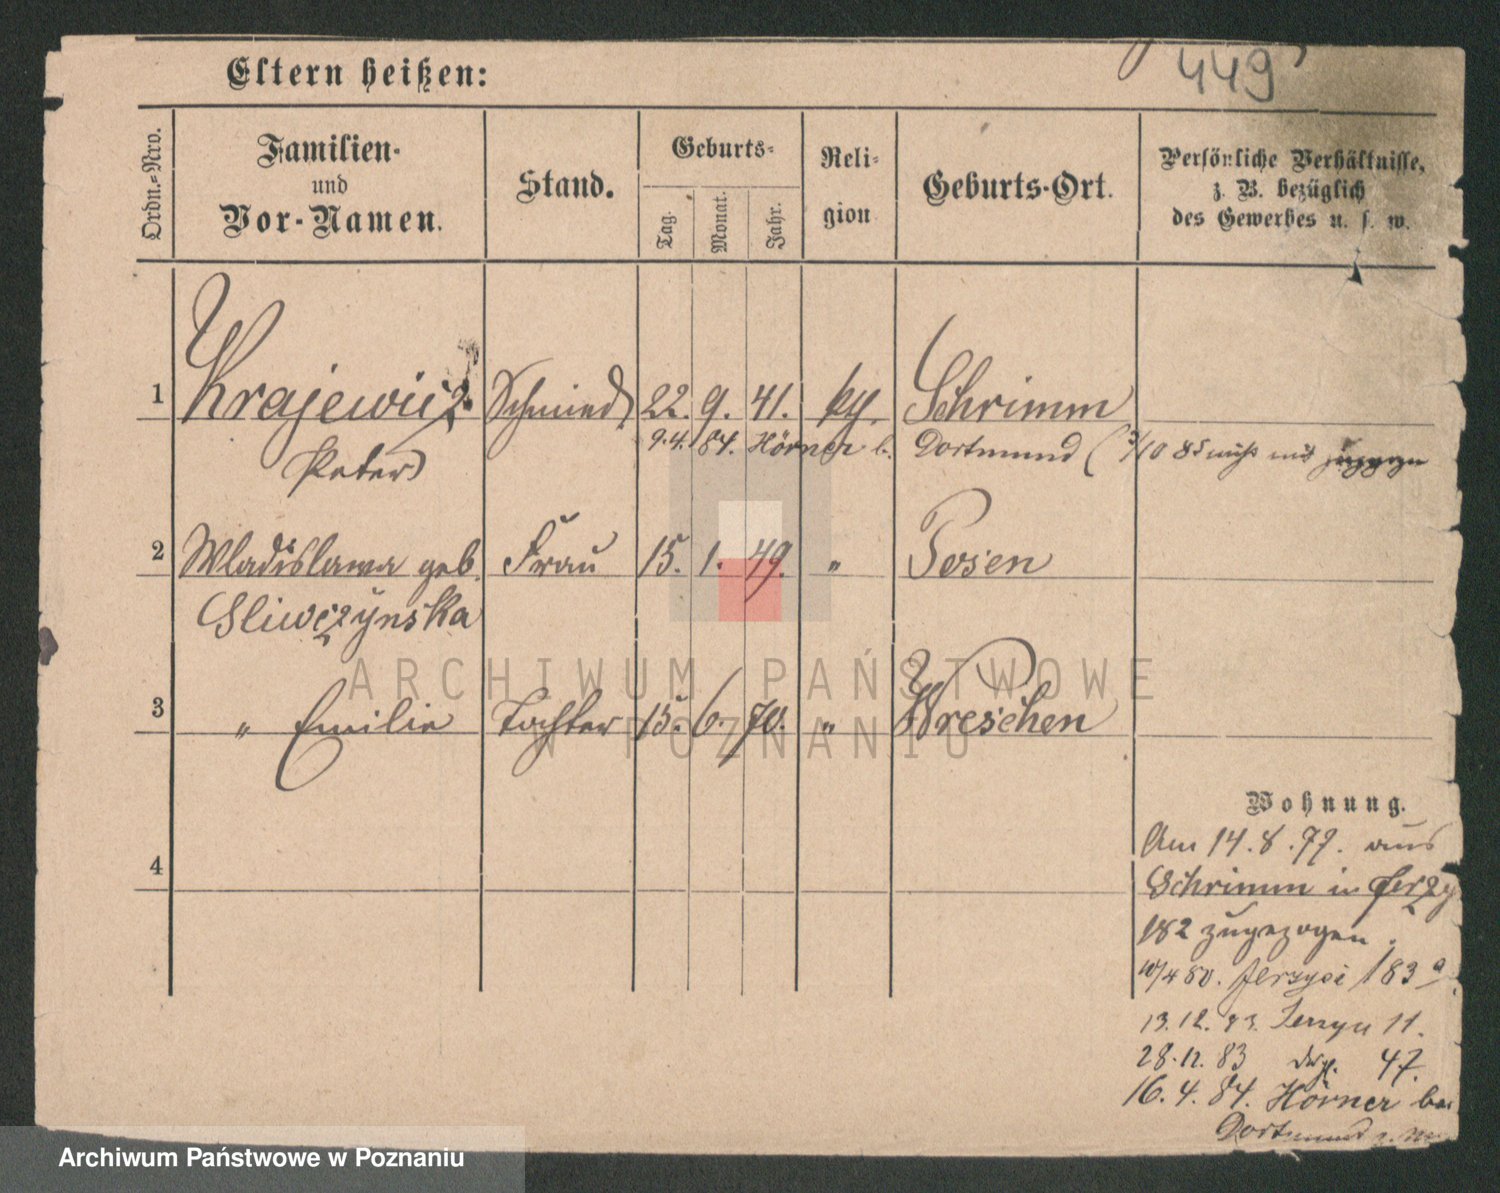 449
Eltern heißen:
Ordn.-Nro.
Familien- und Vor-Namen.
Stand.
Geburts-
Tag.
Monat.
Jahr.
Reli-
gion
Geburts-Ort.
Persönliche Verhältnisse,
z. B. bezüglich
des Gewerbes u. s. w.
1 Krajewicz Schmied 22. 9. 41. Schrimm
Peter
9.4. 84. Hörner b. Dortmund (3/10 85
2 Wladislawa geb. Frau 15. 1. 49. " Posen
Sliwczynska
3 " Emilie Tochter 15. 6. 70. " Wreschen
4
Wohnung.
Am 14. 8. 77. aus
Schrimm in Jerzyc
182 zugezogen.
10/4 80. Jerzyce 183a.
13. 12. 83. 11.
28. 12. 83 47.
16. 4. 84. Hörner bei
Dortmund
ARCHIWUM PAŃSTWOWE
W POZNANIU
Archiwum Państwowe w Poznaniu